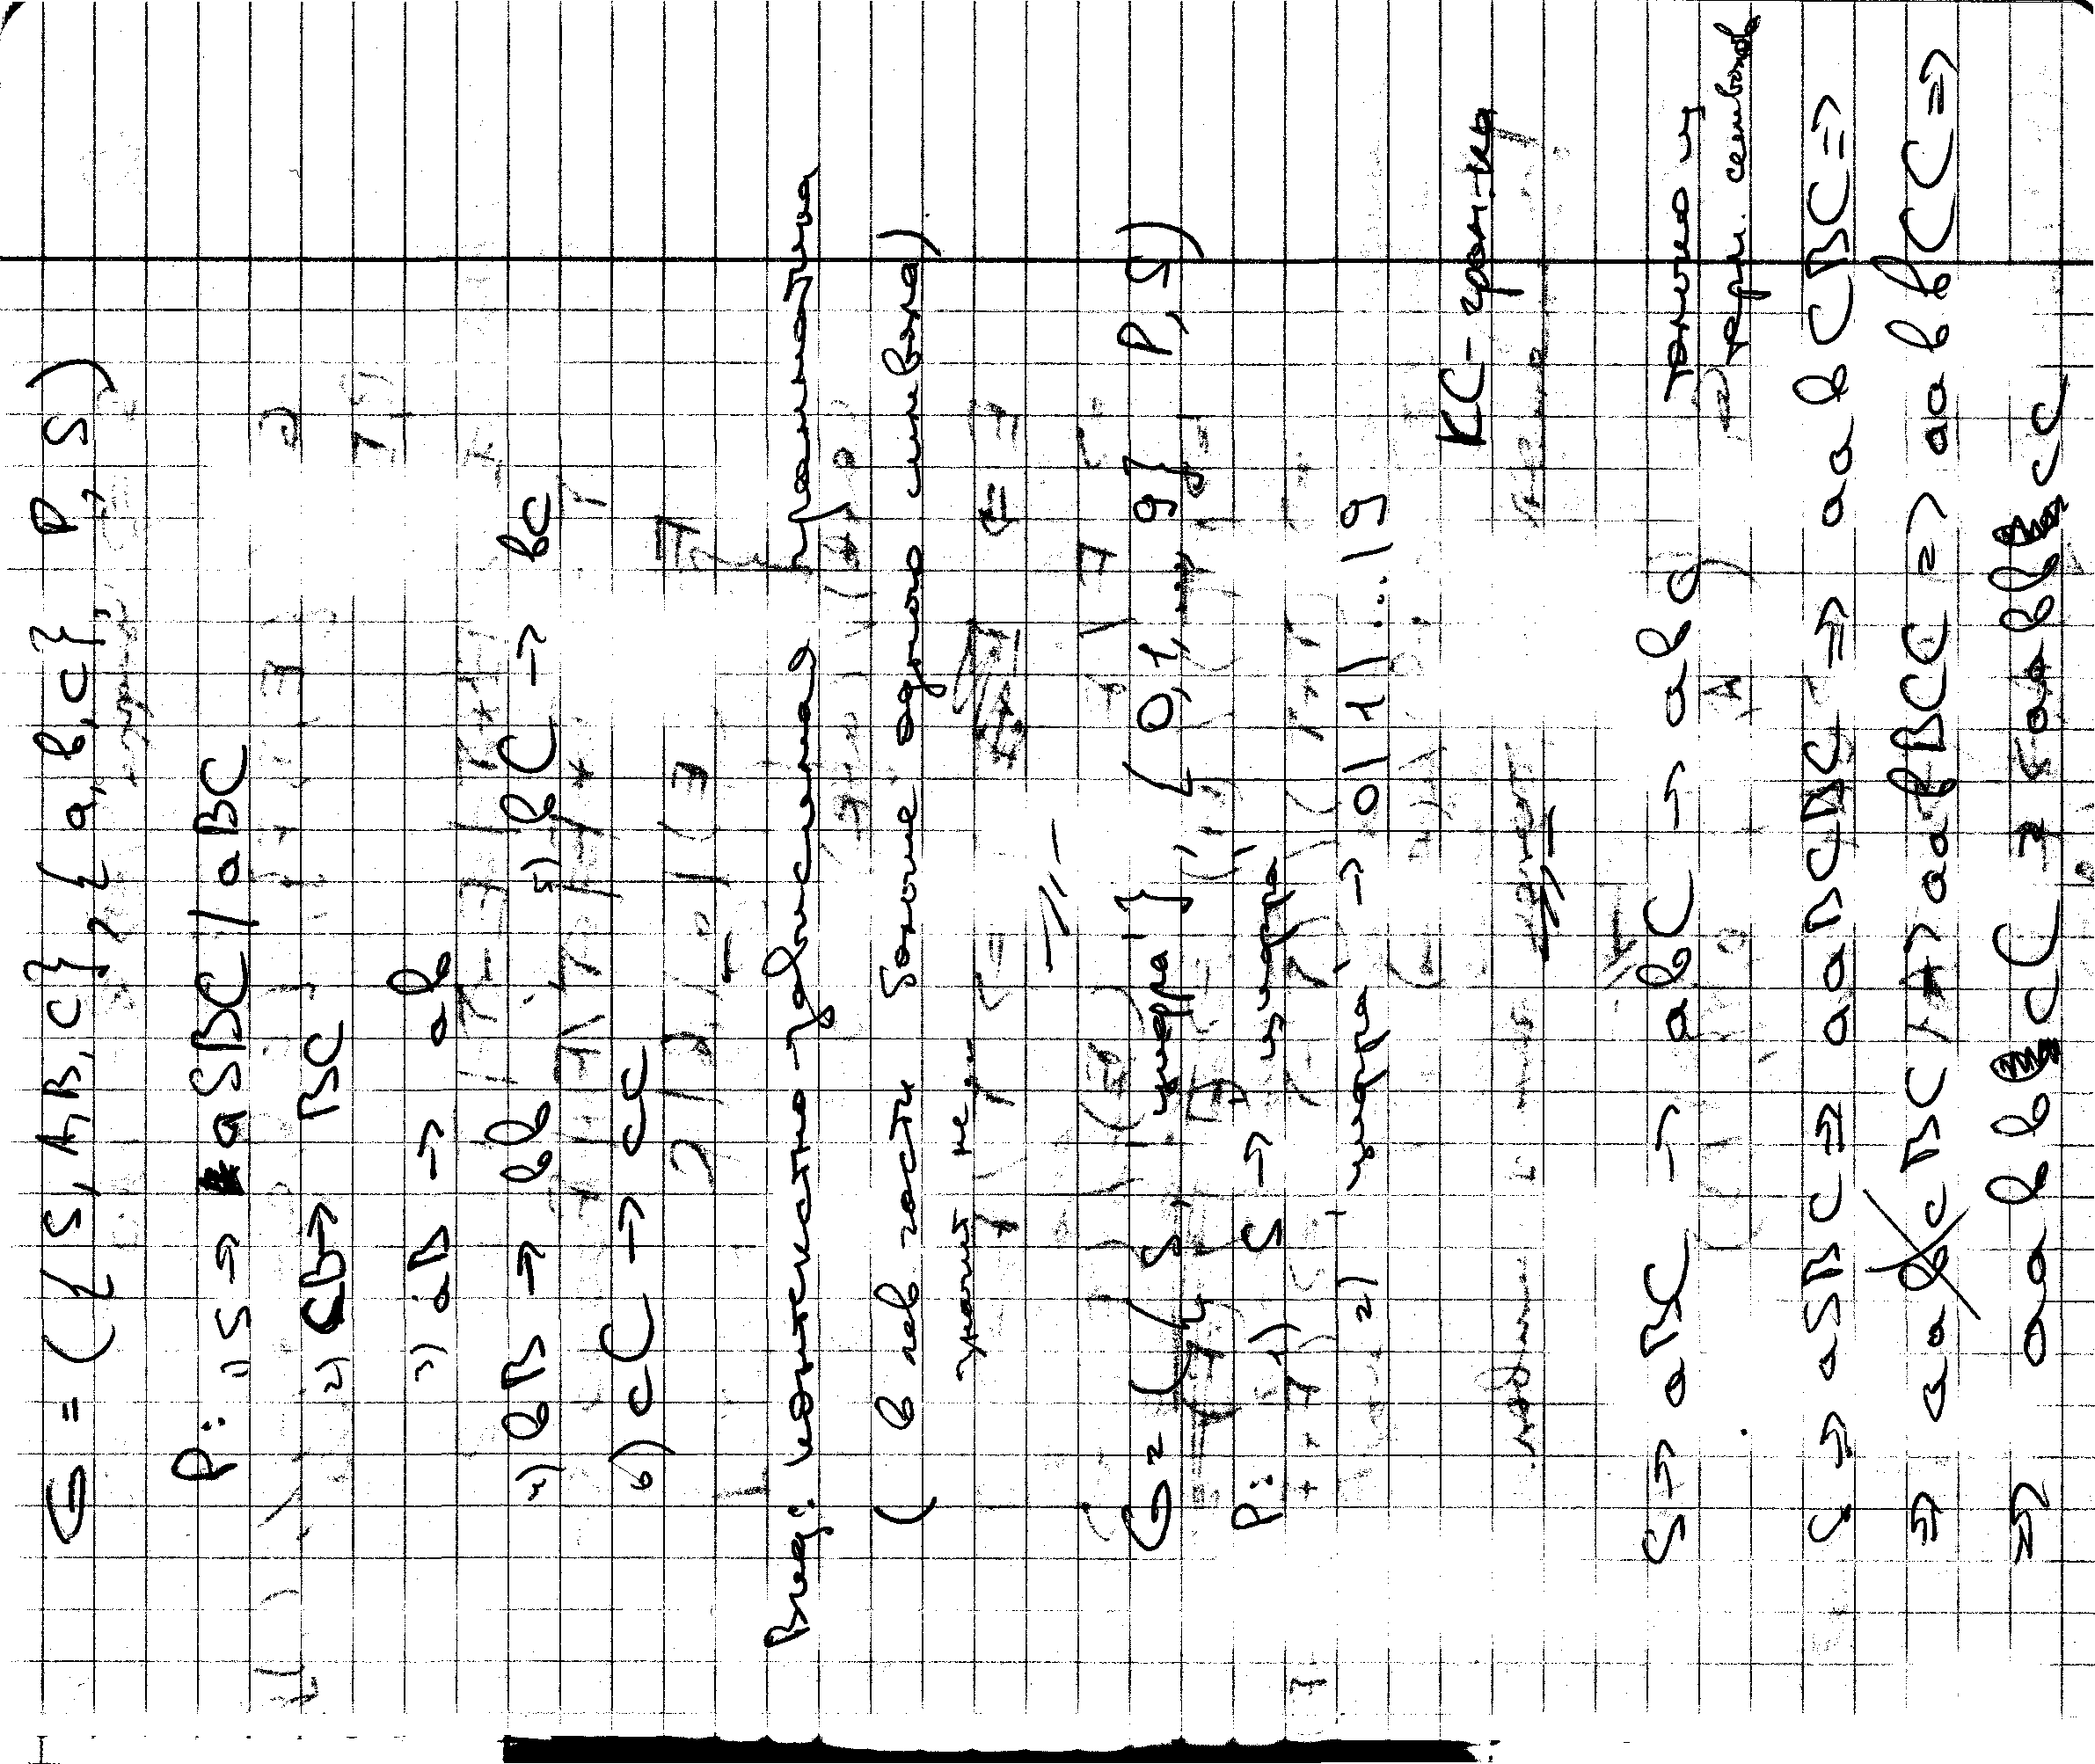 G = ({S, A, B, C}, {a, b, c}, P, S)
P: 1) S → aSBC / aBC
2) CB → BC
3) aB → ab
4) bB → bb 5) bC → bc
6) cC → cc
Вывод: контекстно-зависимая грамматика
(в лев части более одного символа)
G = ({S, цифра}, {0, 1, ..., 9} P, S)
P: 1) S → цифра
2) цифра → 0/1/.../9
КС-грам-ка
S → aBC → abC → abc только из
терм. символов
S ⇒ aSBC ⇒ aaBCBC ⇒ aabCBC ⇒
⇒ aabcBC aabBCC ⇒ aabbCC ⇒
⇒ aabbcC = aabbcc